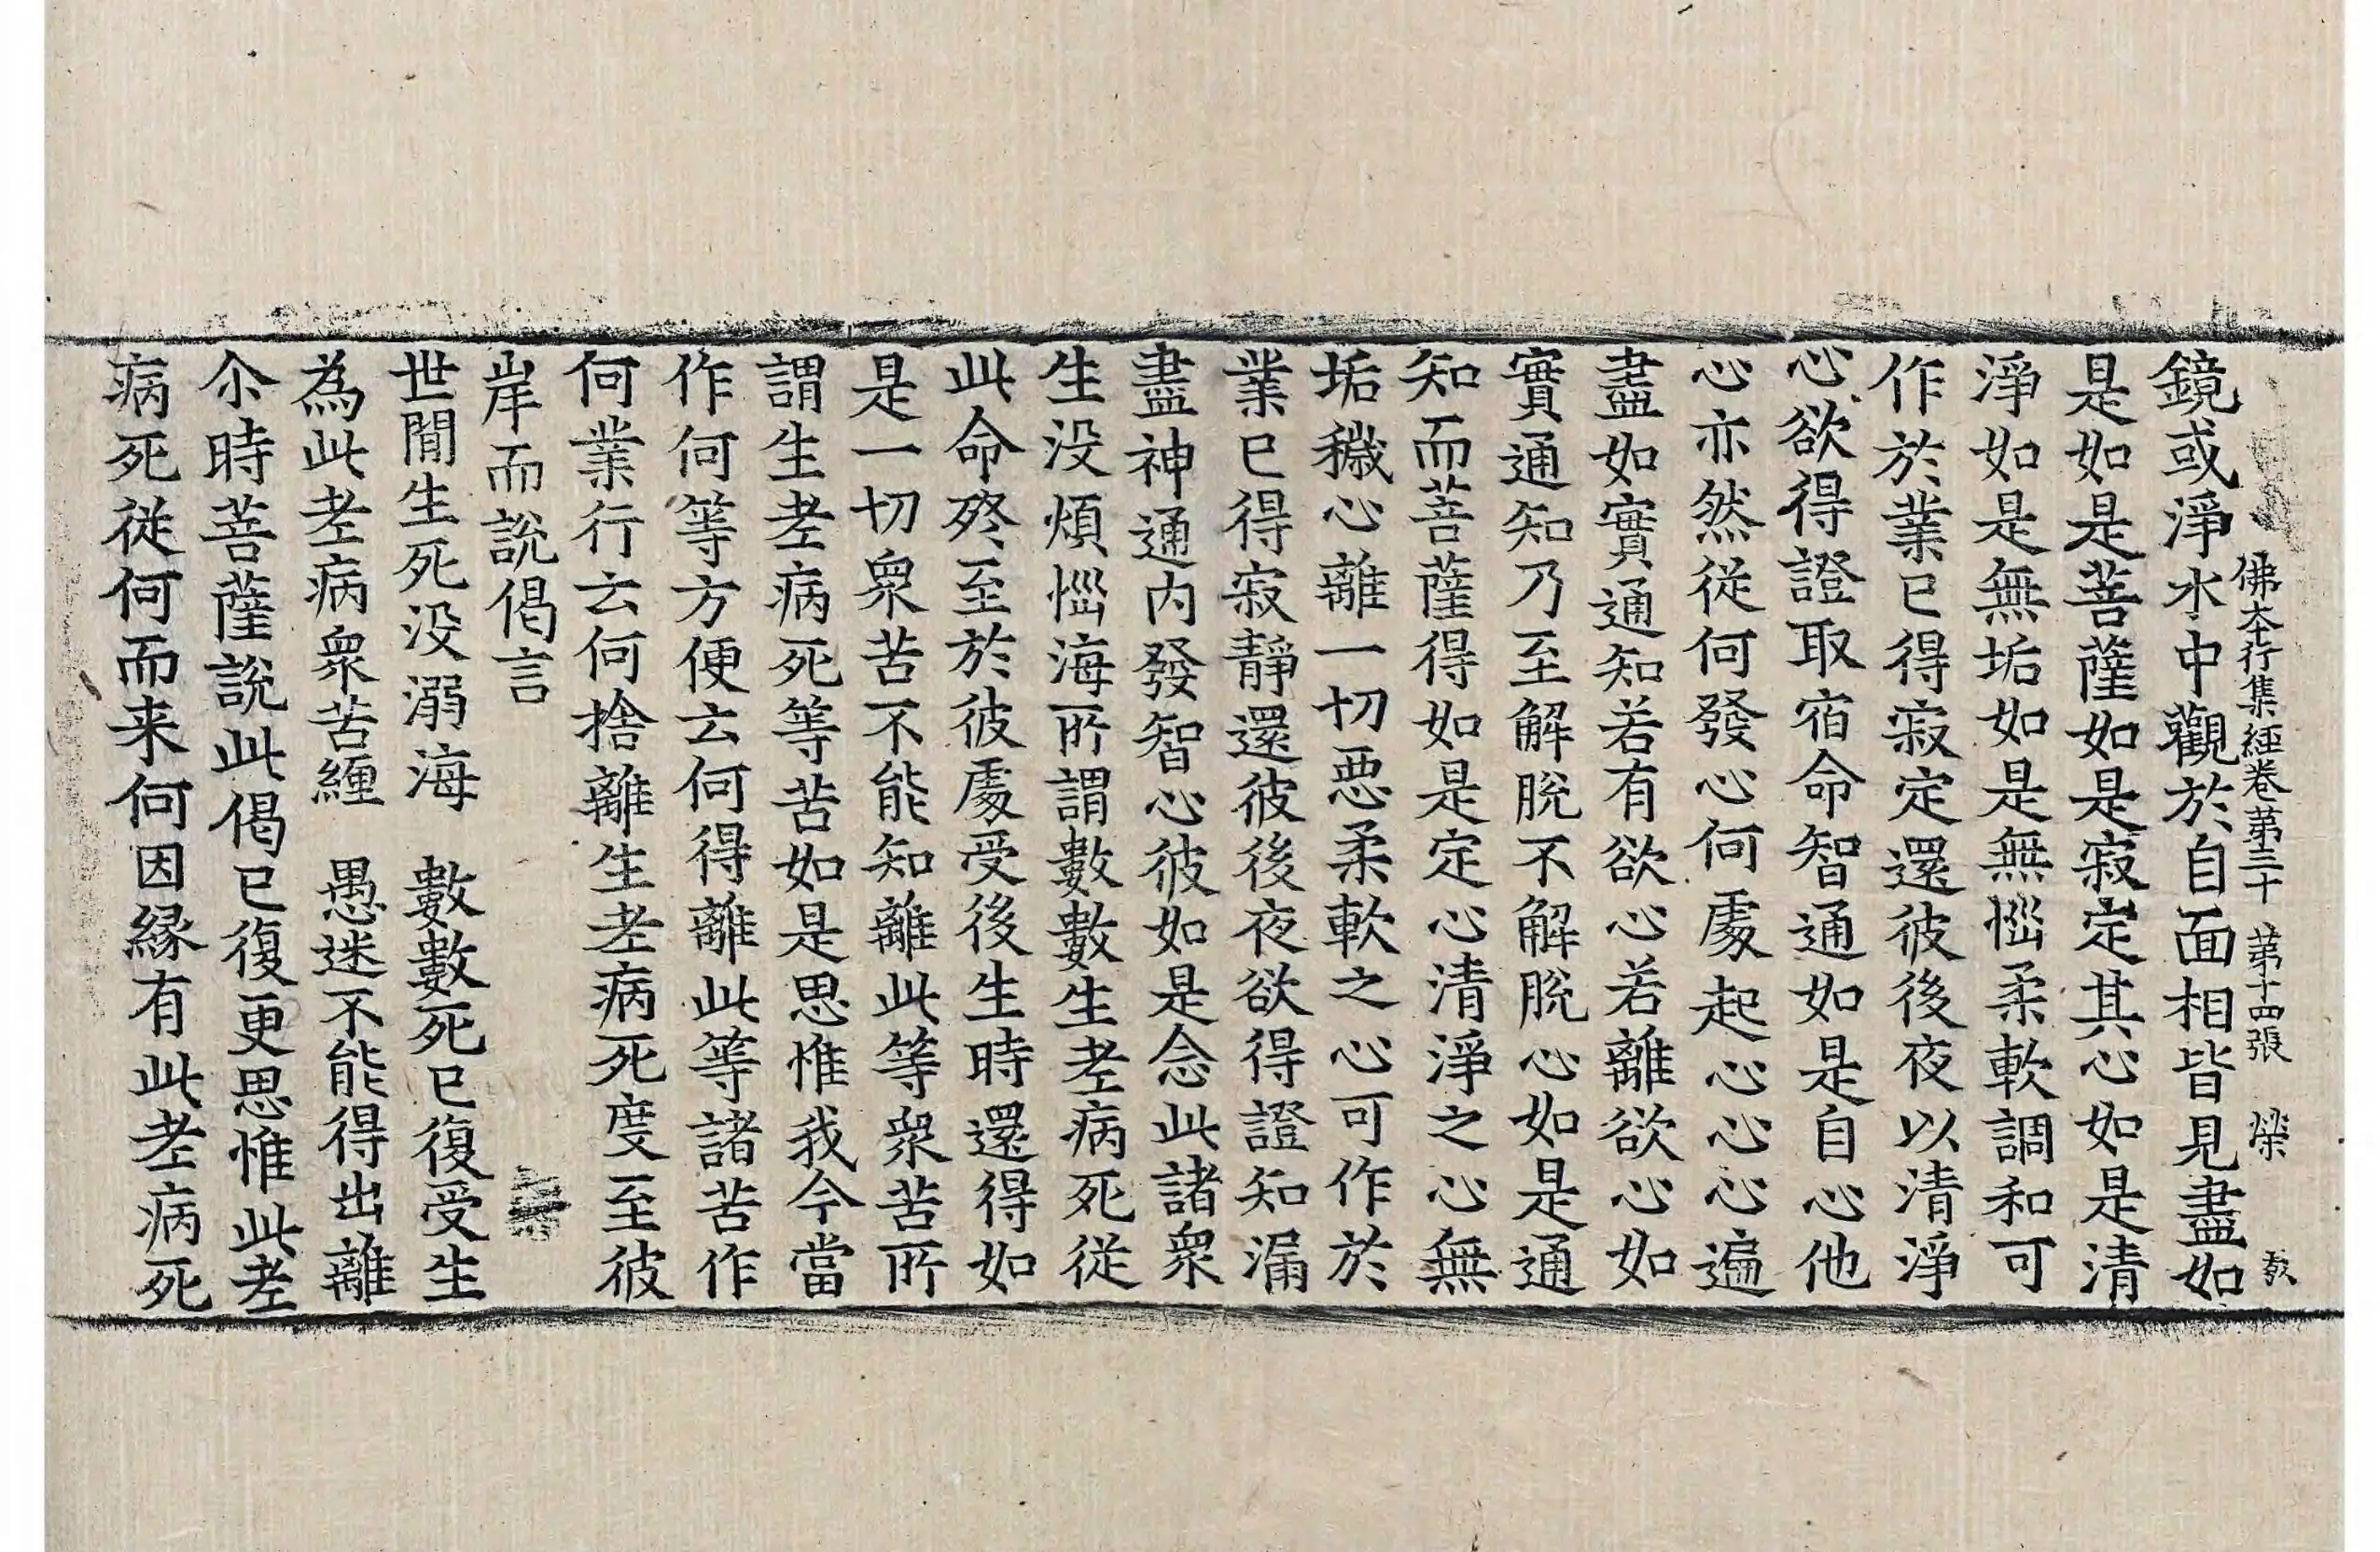 佛夲行集經卷第三十 第十四張 欒
鏡或淨水中觀於自面相皆見盡如
是如是菩薩如是寂定其心如是清
淨如是無垢如是無惱柔軟調和可
作於業已得寂定還彼後夜以清淨
心欲得證取宿命智通如是自心他
心亦然從何發心何處起心心心遍
盡如實通知若有欲心若離欲心如
實通知乃至解脫不解脫心如是通
知而菩薩得如是定心清淨之心無
垢穢心離一切惡柔軟之心可作於
業已得寂靜還彼後夜欲得證知漏
盡神通內發智心彼如是念此諸衆
生没煩惱海所謂數數生老病死從
此命終至於彼處受後生時還得如
是一切衆苦不能知離此等衆苦所
謂生老病死等苦如是思惟我今當
作何等方便云何得離此等諸苦作
何業行云何捨離生老病死度至彼
岸而說偈言
世間生死没溺海 數數死已復受生
為此老病衆苦纏 愚迷不能得出離
尒時菩薩說此偈已復更思惟此老
病死從何而来何因緣有此老病死